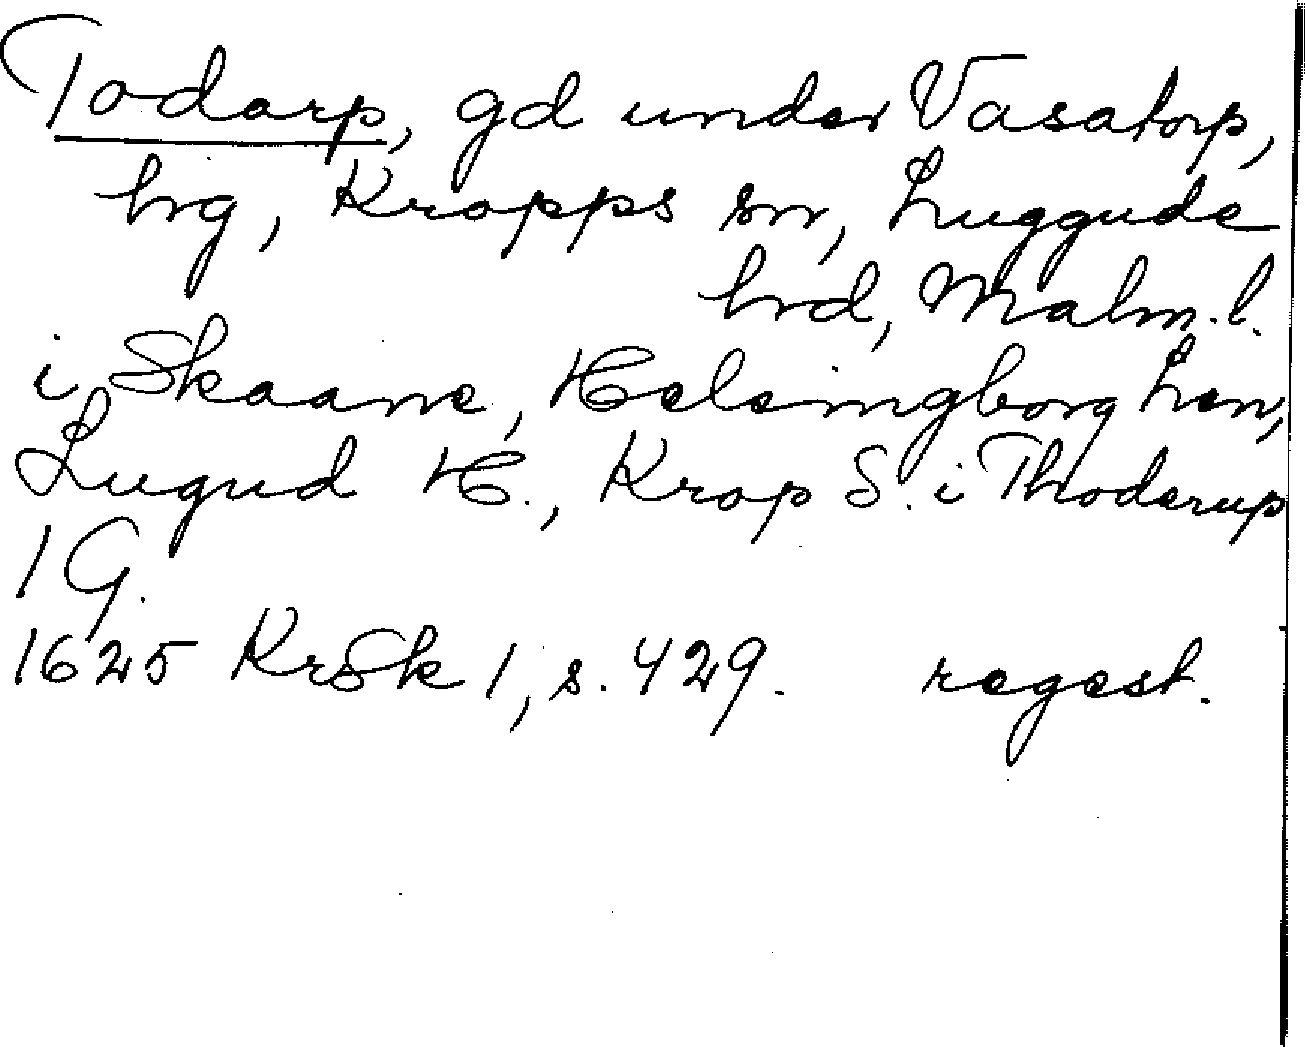 Todarp, gd under Vasatorp,
hrg, Kropps sn, Luggude
hrd, Malm. l.
i Skaane, Helsingborg Len,
Lugud H., Krop S. i Thoderup
1 G.
1625 KrSk 1, s. 429. regest.